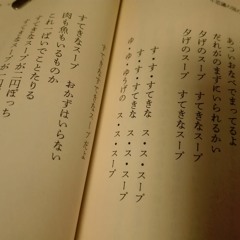 あついおなべでまってるよ
だれがのまずにいられるかい
夕げのスープ　すてきなスープ
夕げのスープ　すてきなスープ
す・す・すてきな　ス・ス・スープ
す・す・すてきな　ス・ス・スープ
ゆ・ゆ・ゆうげの　ス・ス・スープ
すてきなすてきなスープ
すてきなスープ　おかずはいらない
肉も魚もいるものか
これいっぱいでことたりる
すてきなスープが二円ぽっち
すてきなスープが二円